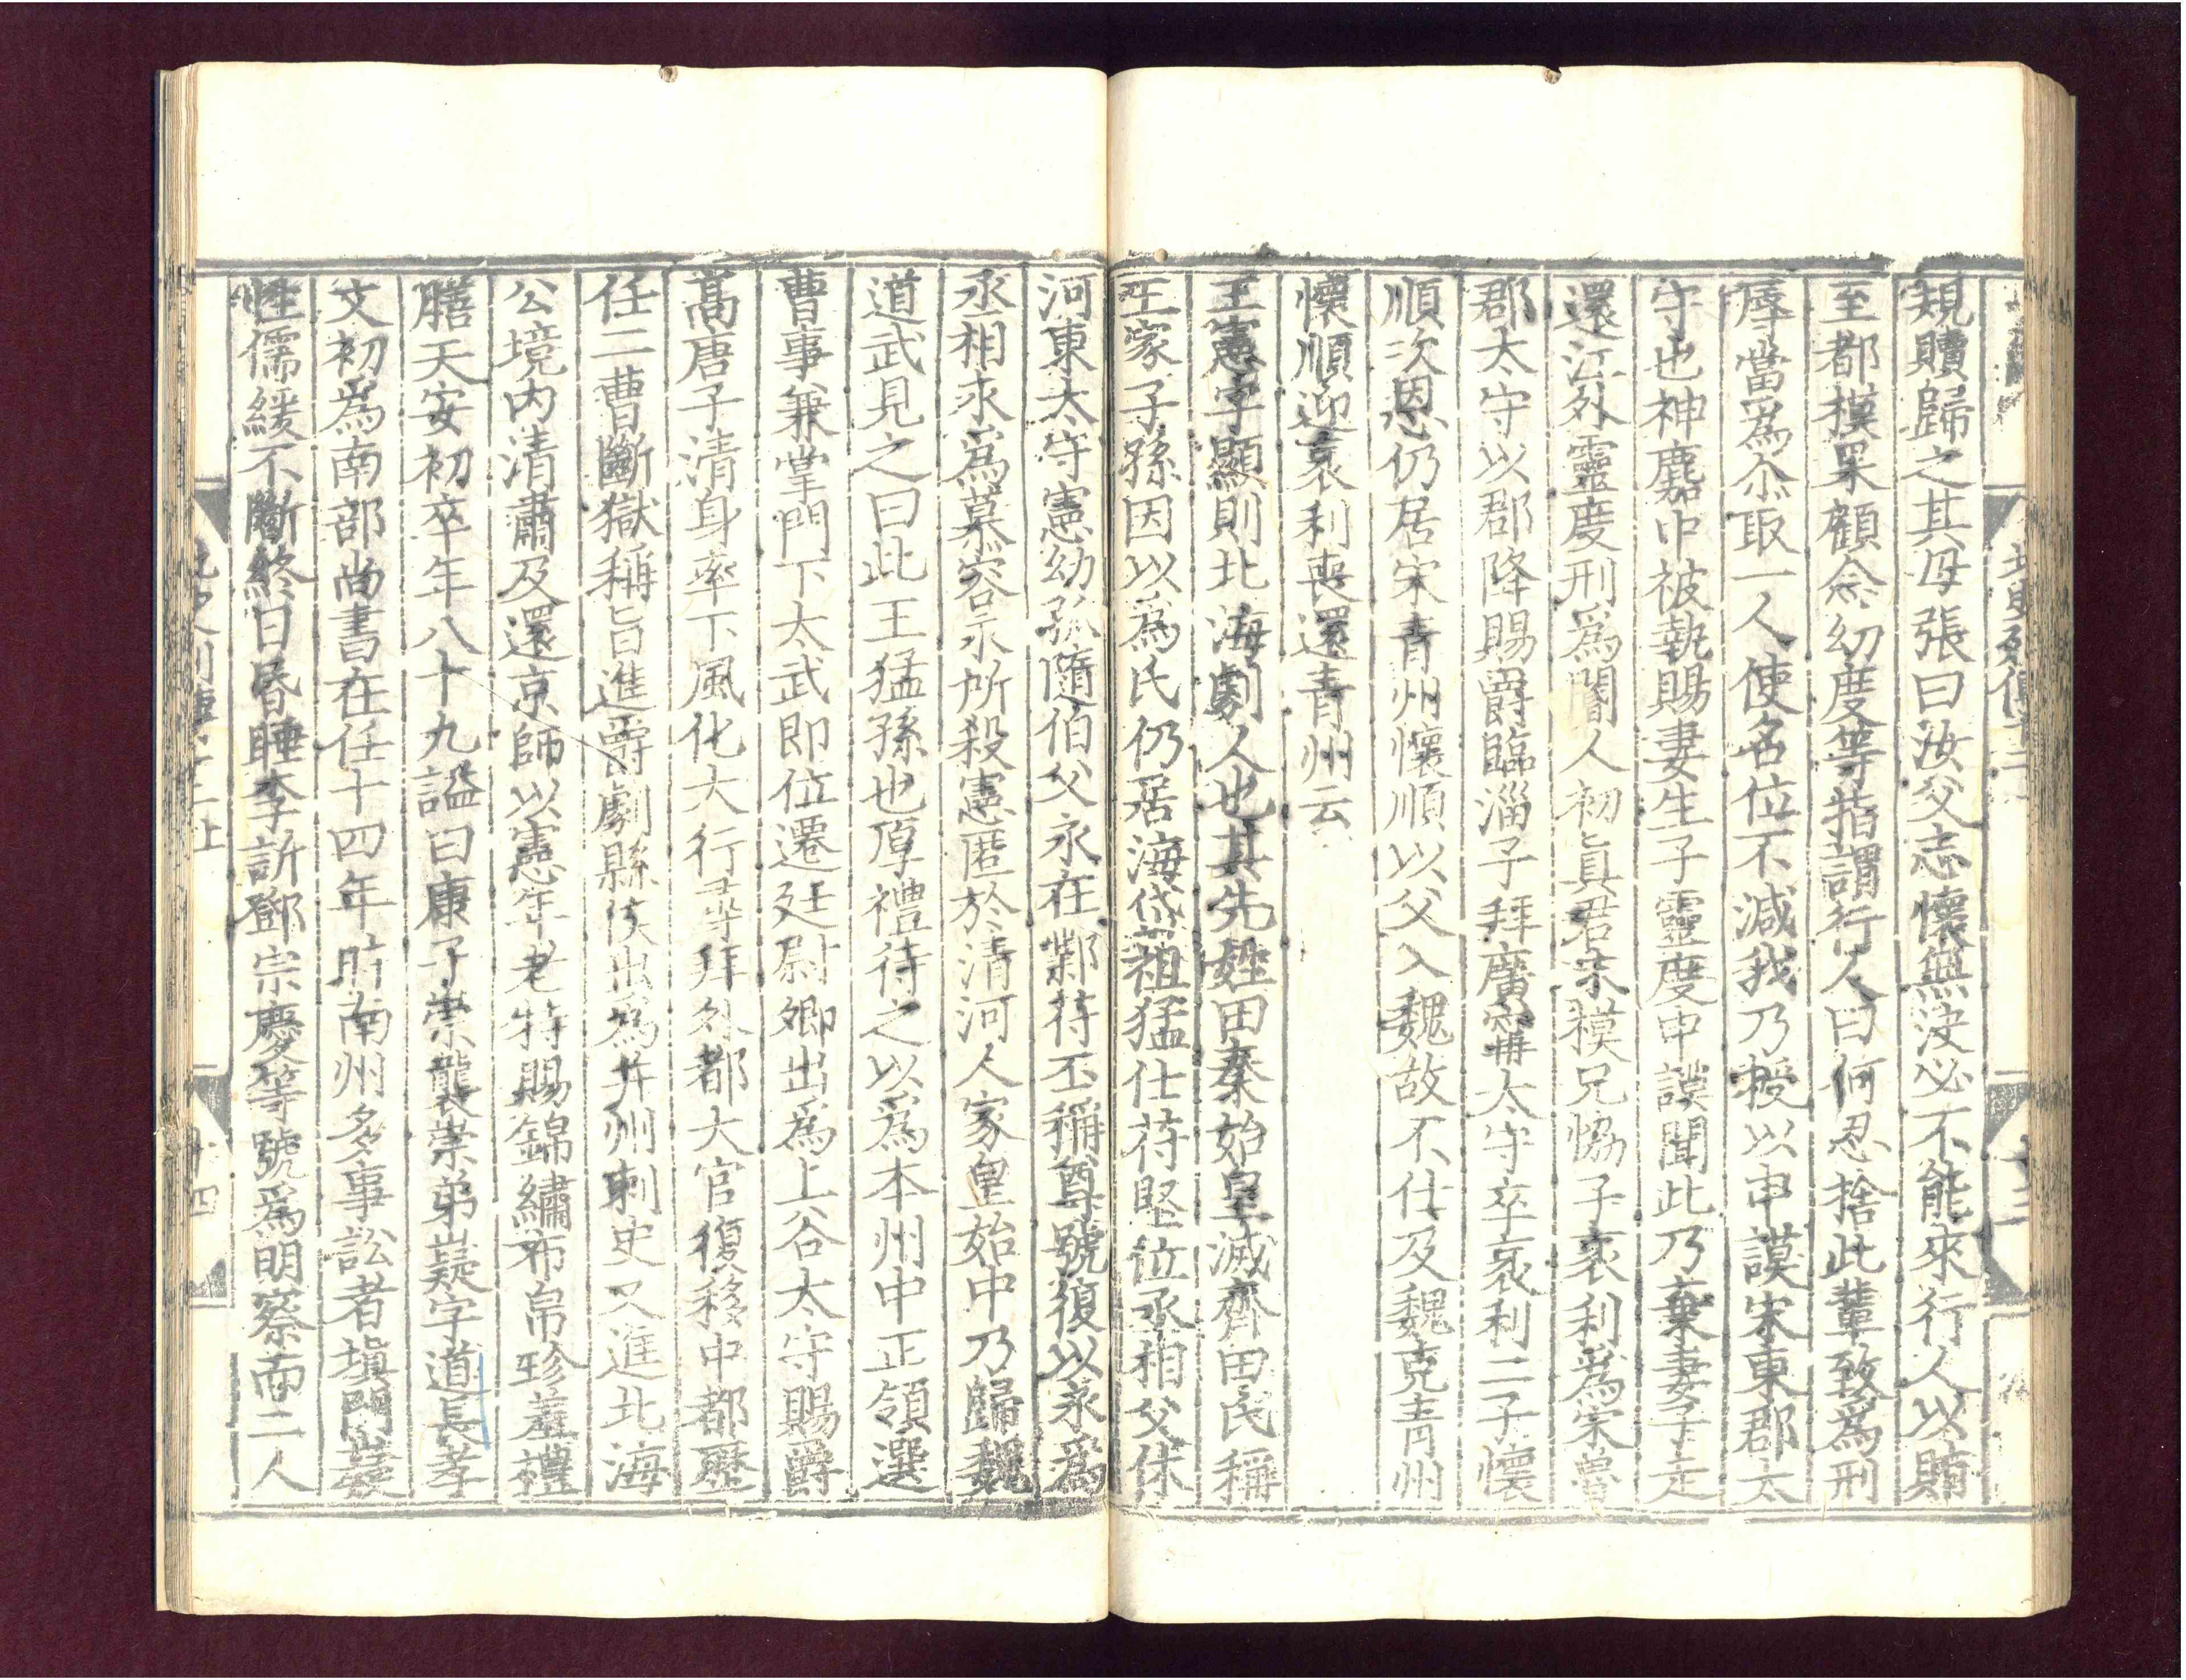 北史列傳十二
十三
規贖歸之其母張曰汝父志懷無決必不能來行人以賄
至都模果顧念幼度等指謂行人曰何忍捨此輩致爲刑
辱當爲尒取一人使名位不減我乃授以申謨宋東郡太
守也神䴥中被執賜妻生子靈度申謨聞此乃棄妻子走
還江外靈度刑爲閹人初眞君末模兄恊子衷利爲宋魯
郡太守以郡降賜爵臨淄子拜廣寧太守卒衷利二子懷
順次恩仍居宋青州懷順以父入魏故不仕及魏克青州
懷順迎衷利喪還青州云
王憲字顯則北海劇人也其先姓田秦始皇滅齊田氏稱
王家子孫因以爲氏仍居海岱祖猛仕苻堅位丞相父休
河東太守憲幼孤隨伯父永在鄴苻丕稱尊號復以永爲
丞相永爲慕容永所殺憲匿於清河人家皇始中乃歸魏
道武見之曰此王猛孫也厚禮待之以爲本州中正領選
曹事兼掌門下太武即位遷廷尉卿出爲上谷太守賜爵
高唐子清身率下風化大行尋拜外都大官復移中都歷
任二曹斷獄稱旨進爵劇縣侯出爲并州刺史又進北海
公境內清肅及還京師以憲年老特賜錦繡布帛珍羞禮
膳天安初卒年八十九謚曰康子崇襲崇弟嶷字道長孝
文初爲南部尚書在任十四年時南州多事訟者塡門嶷
性儒緩不斷終日昏睡李訢鄧宗慶等號爲明察而二人
十四